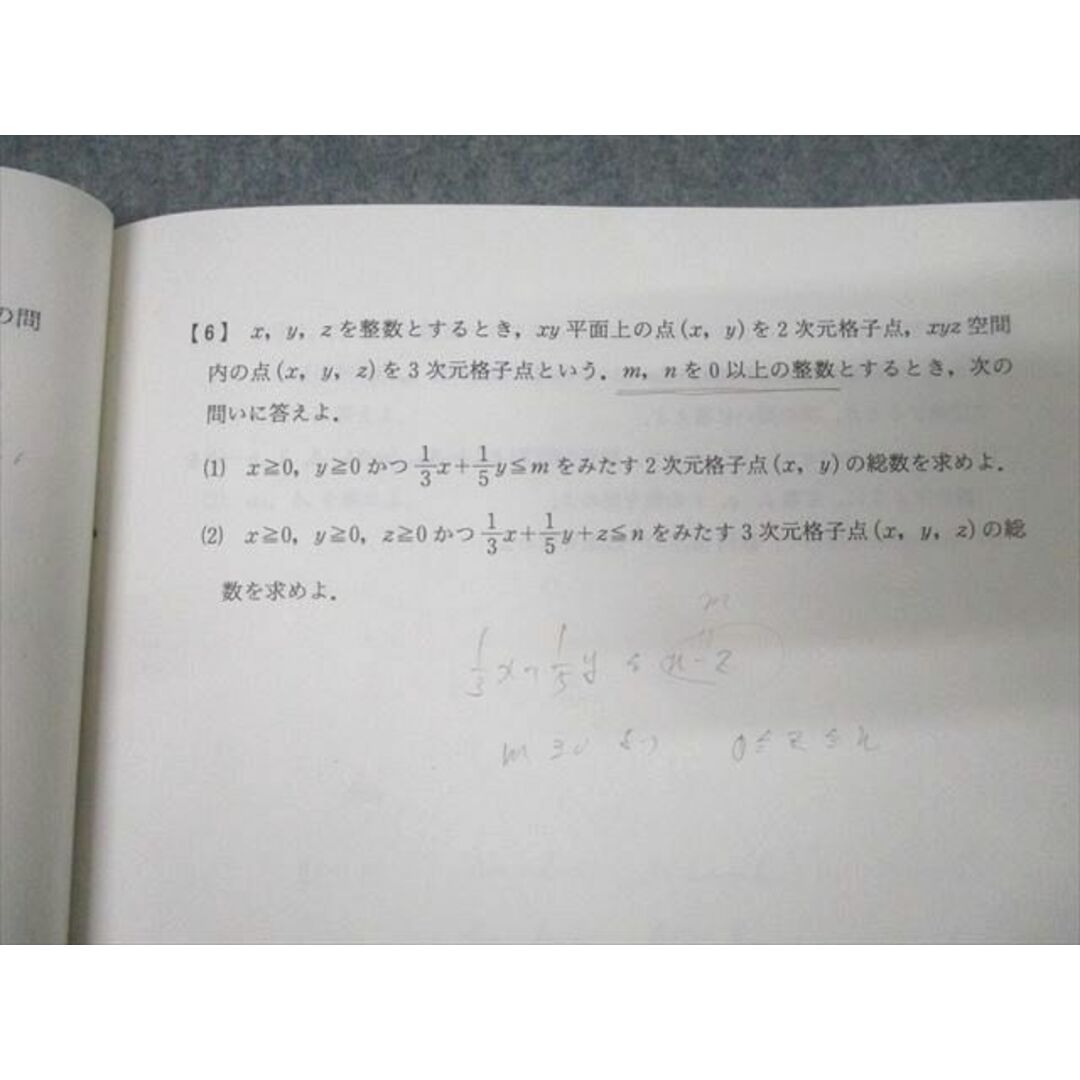 の問
【6】 x, y, zを整数とするとき, xy平面上の点(x, y)を2次元格子点, xyz空間
内の点(x, y, z)を3次元格子点という. m, nを0以上の整数とするとき, 次の
問いに答えよ.
(1) x≧0, y≧0かつ1/3x+1/5y≦mをみたす2次元格子点(x, y)の総数を求めよ.
(2) x≧0, y≧0, z≧0かつ1/3x+1/5y+z≦nをみたす3次元格子点(x, y, z)の総
数を求めよ.
m
1/3x+1/5y≦n-z
m≧0より 0≦z≦n